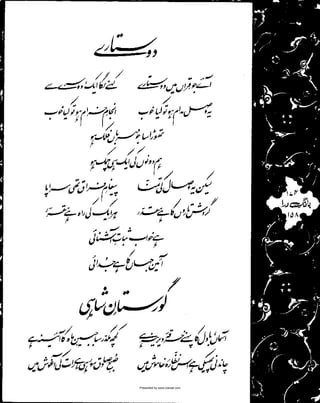 دو ستارے
آئے جو قراں میں دو ستارے کہنے لگا ایک دوسرے سے
یہ وصل مدام ہو تو کیا خوب انجام خرام ہو تو کیا خوب
تھوڑا سا جو مہرباں فلک ہو
ہم دونوں کی ایک ہی چمک ہو
لیکن یہ وصال کی تمنا پیغام فراق تھی سراپا
گردش تاروں کا ہے مقدر ہر ایک کی راہ ہے مقرر
ہے خواب ثبات آشنائی
آئین جہاں کا ہے جدائی
گورستان شاہی
آسماں بادل کا پہنے خرقۂ دیرینہ ہے کچھ مکدر سا جبین ماہ کا آئینہ ہے
چاندنی پھیکی ہے اس نظارۂ خاموش میں صبح صادق سو رہی ہے رات کی آغوش میں
بانگ درا
۱۵۸
Presented by